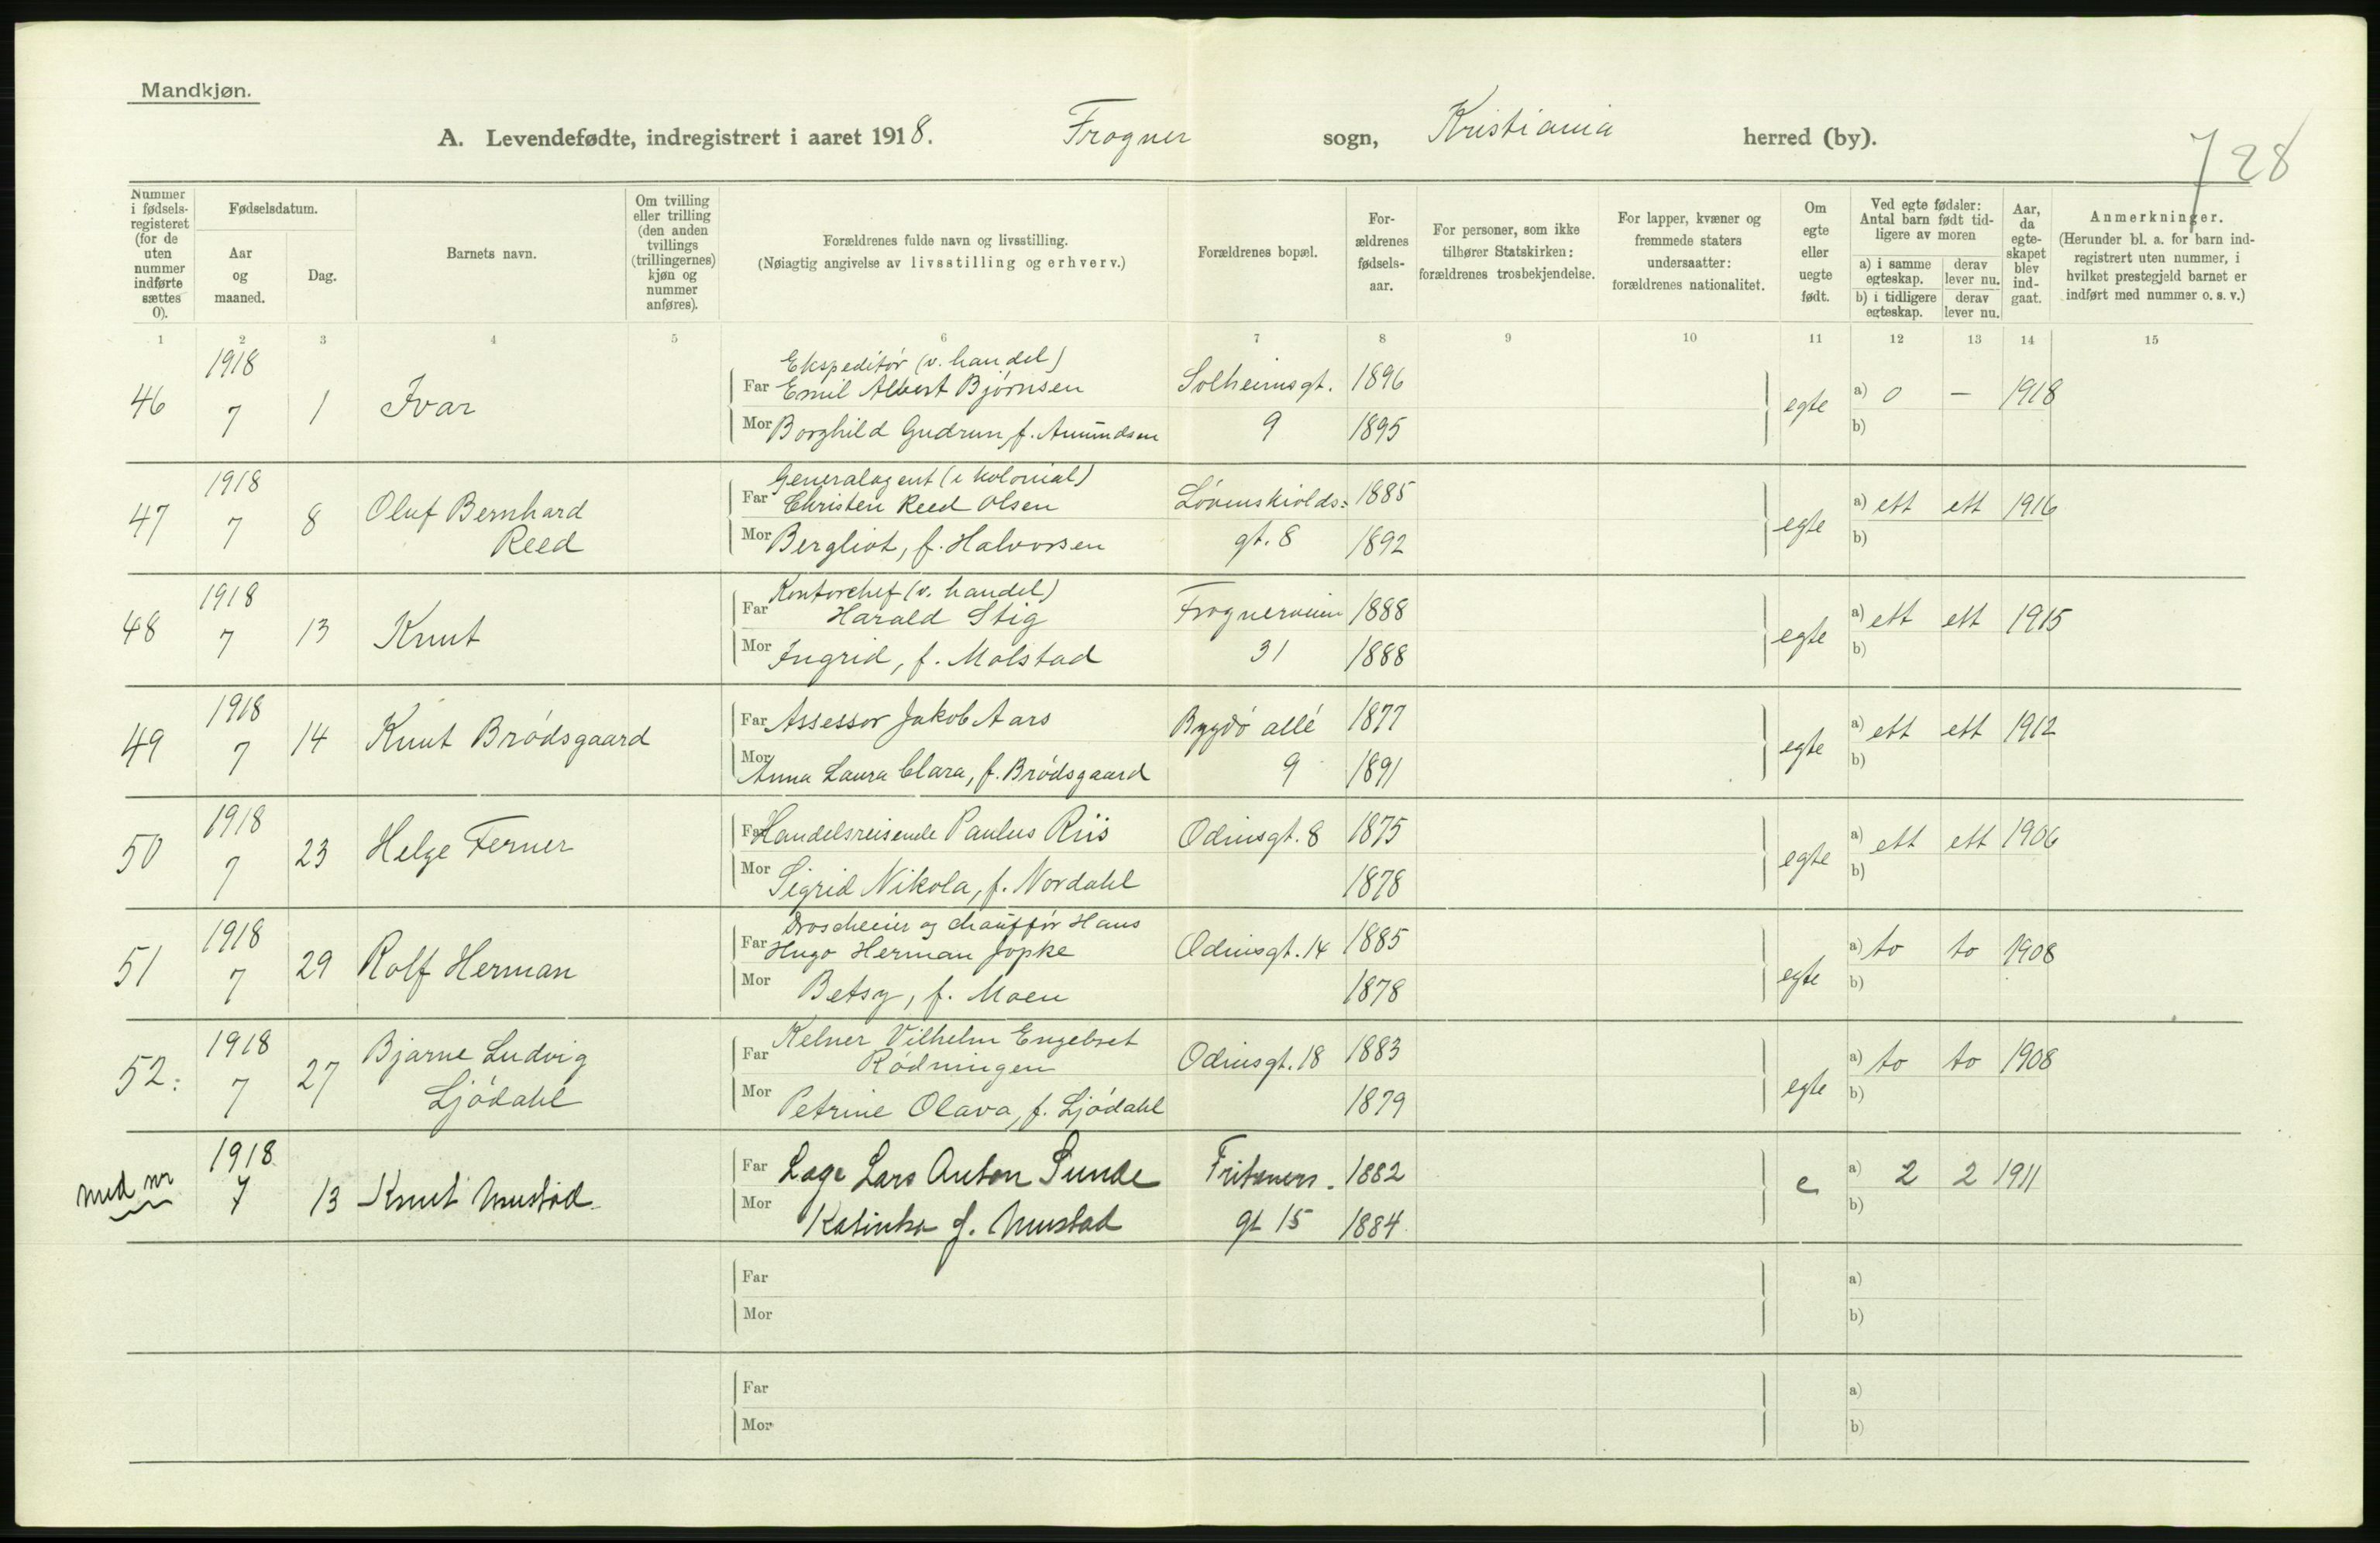 Mandkjøn.
A. Levendefødte, indregistrert i aaret 1918. Frogner sogn, Kristiania herred (by).
7 28
Nummer i fødselsregisteret (for de uten nummer indførte sættes 0).
Fødselsdatum.
Aar og maaned.
Dag.
Barnets navn.
Om tvilling eller trilling (den anden tvillings (trillingernes) kjøn og nummer anføres).
Forældrenes fulde navn og livsstilling.
(Nøiagtig angivelse av livsstilling og erhverv.)
Forældrenes bopæl.
Forældrenes fødselsaar.
For personer, som ikke tilhører Statskirken: forældrenes trosbekjendelse.
For lapper, kvæner og fremmede staters undersaatter: forældrenes nationalitet.
Om egte eller uegte født.
Ved egte fødsler: Antal barn født tidligere av moren
a) i samme egteskap. derav lever nu.
b) i tidligere egteskap. derav lever nu.
Aar, da egteskapet blev indgaat.
Anmerkninger.
(Herunder bl. a. for barn indregistrert uten nummer, i hvilket prestegjeld barnet er indført med nummer o. s. v.)
1 2 3 4 5 6 7 8 9 10 11 12 13 14 15
46 1918 7 1 Ivar
Ekspeditør (v. handel)
Far Emil Albert Bjørnsen Solheimsgt. 1896
Mor Borghild Gudrun, f. Amundsen 9 1895
egte a) 0 – 1918
b)
47 1918 7 8 Oluf Bernhard Reed
Generalagent (i kolonial)
Far Christen Reed Olsen Løvenskiolds= 1885
Mor Bergliot, f. Halvorsen gt. 8 1892
egte a) ett ett 1916
b)
48 1918 7 13 Knut
Kontorchef (v. handel)
Far Harald Stig Frognerveien 1888
Mor Ingrid, f. Molstad 31 1888
egte a) ett ett 1915
b)
49 1918 7 14 Knut Brødsgaard
Far Assessor Jakob Aars Bygdø allé 1877
Mor Anna Laura Clara, f. Brødsgaard 9 1891
egte a) ett ett 1912
b)
50 1918 7 23 Helge Ferner
Far Handelsreisende Paulus Riis Odinsgt. 8 1875
Mor Sigrid Nikola, f. Nordahl 1878
egte a) ett ett 1906
b)
51 1918 7 29 Rolf Herman
Droscheeier og chauffør Hans
Far Hugo Herman Jopke Odinsgt. 14 1885
Mor Betsy, f. Moen 1878
egte a) to to 1908
b)
52: 1918 7 27 Bjarne Ludvig Ljødahl
Kelner Vilhelm Engebret
Far Rødningen Odinsgt. 18 1883
Mor Petrine Olava, f. Ljødahl 1879
egte a) to to 1908
b)
med nr 1918 7 13 Knut Mustad
Far Lage Lars Anton Sunde Fritzners. 1882
Mor Katinka f. Mustad gt 15 1884
e a) 2 2 1911
b)
Far a)
Mor b)
Far a)
Mor b)